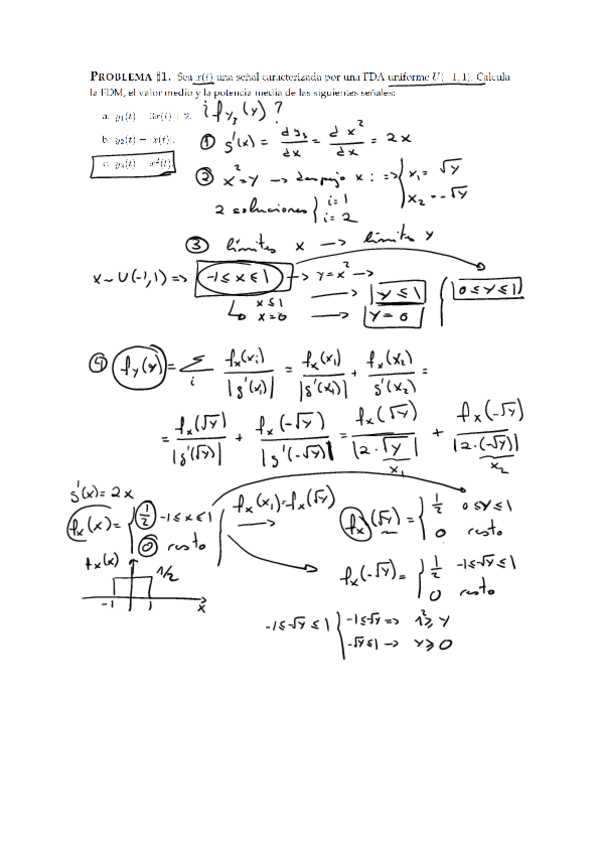 PROBLEMA #1. Sea x(t) una señal caracterizada por una FDA uniforme U(-1, 1). Calcula
la FDM, el valor medio y la potencia media de las siguientes señales:
a. y₁(t) = 3x(t) + 2.
¿ f_{y₃}(y) ?
b. y₂(t) = x(t).
① g'(x) = dy₃/dx = d x²/dx = 2x
c. y₃(t) = x²(t).
② x² = y → despejo x : => { x₁ = √y
x₂ = -√y
2 soluciones { i=1
i=2
③ límites x → límites y
x ~ U(-1,1) => -1 ≤ x ≤ 1 → y = x² → { 0 ≤ y ≤ 1
x ≤ 1 → y ≤ 1
x = 0 → y = 0
④ f_y(y) = Σ_i f_x(x_i)/|g'(x_i)| = f_x(x₁)/|g'(x₁)| + f_x(x₂)/g'(x₂) =
= f_x(√y)/|g'(√y)| + f_x(-√y)/|g'(-√y)| = f_x(√y)/|2·√y| + f_x(-√y)/|2·(-√y)|
x₁ x₂
g'(x) = 2x
f_x(x) = { 1/2 -1 ≤ x ≤ 1
0 resto
f_x(x₁) = f_x(√y) →
f_x(√y) = { 1/2 0 ≤ y ≤ 1
0 resto
f_x(x)
1/2
-1 1 x
f_x(-√y) = { 1/2 -1 ≤ -√y ≤ 1
0 resto
-1 ≤ -√y ≤ 1 { -1 ≤ -√y => 1² ≥ y
-√y ≤ 1 → y ≥ 0